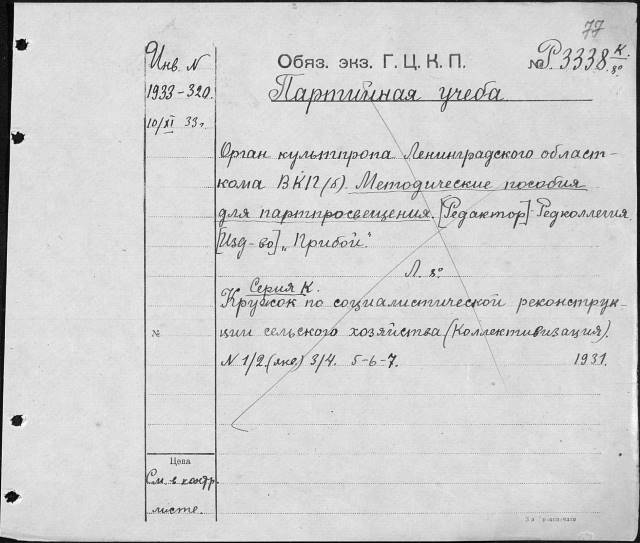 77
Инв. N
1933-320.
10/XI 33г.
Обяз. экз. Г.Ц.К.П.
№ Р.3338 К./8°
Партийная учеба.
Орган культпропа Ленинградского област-
кома ВКП(б). Методические пособия
для партпросвещения. [Редактор]-Редколлегия.
[Изд-во] „Прибой".
Л. 8°
Серия К.
Кружок по социалистической реконструк-
ции сельского хозяйства (Коллективизация).
№
N 1/2.(янв) 3/4. 5-6-7. 1931.
Цена
См. в контр.
листе.